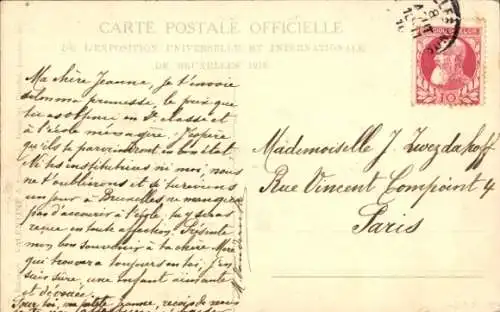 CARTE POSTALE OFFICIELLE
DE L'EXPOSITION UNIVERSELLE ET INTERNATIONALE
DE BRUXELLES 1910
Ma chère Jeanne, je t'envoie
selon ma promesse, le prix que
tu as obtenu en classe et
à l'école ménagère. J'espère
qu'ils te parviendront en bon état
Ni tes institutrices ni moi, nous
ne t'oublierons et si tu reviens
un jour à Bruxelles ne manque
pas d'accourir à l'école, tu y seras
reçue en toute affection. Présente
mon bon souvenir à ta chère Mère
qui trouvera toujours en toi, j'en
suis sûre, une enfant aimante
et dévouée.
Pour toi, ma petite Jeanne, reçois de nous
Mademoiselle J. Zwezdakoff
Rue Vincent Compoint 4
Paris
10